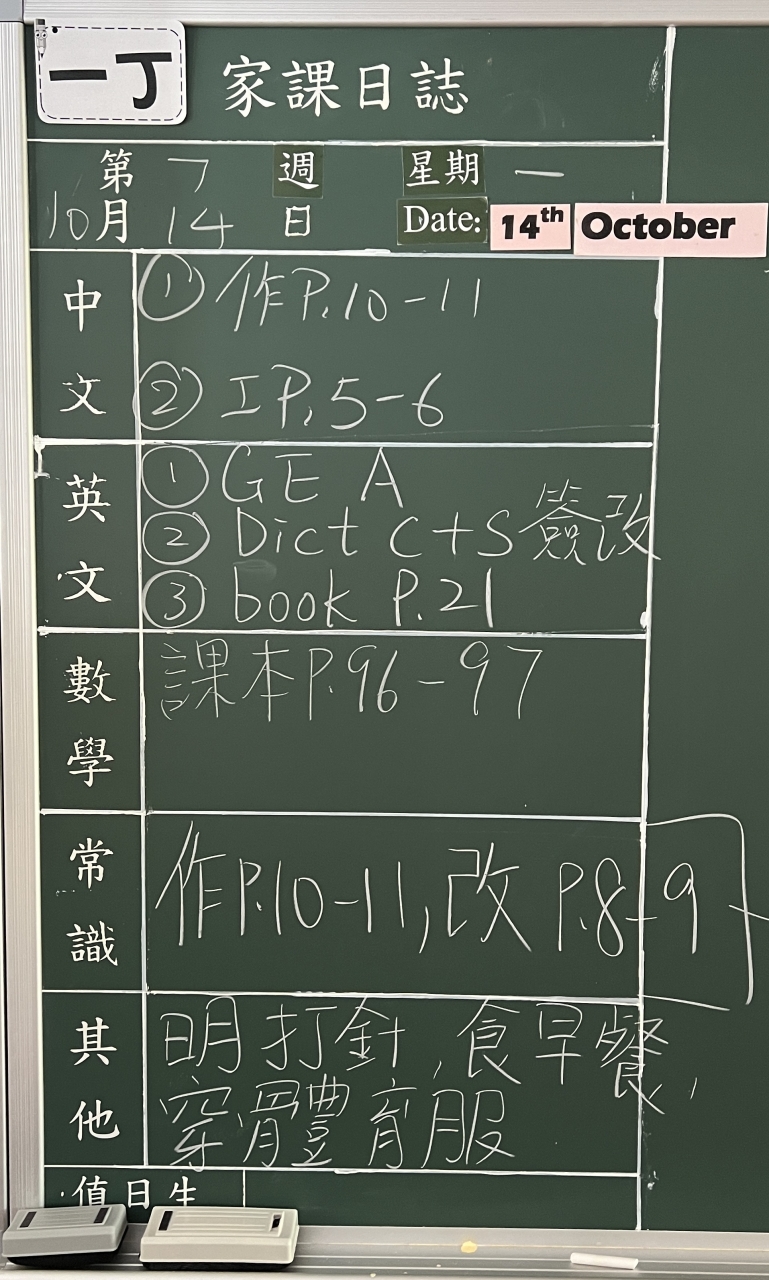 一丁 家課日誌
第 7 週 星期 一
10月 14 日 Date: 14th October
中文
① 作P.10-11
② 工P.5-6
英文
① GE A
② Dict C+S 簽改
③ book P.21
數學
課本P.96-97
常識
作P.10-11,改 P.8-9
其他
明打針,食早餐,
穿體育服
值日生